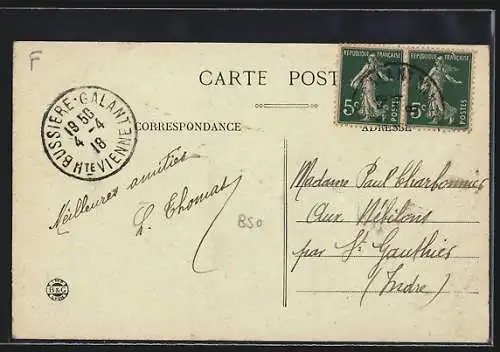 F
CARTE POST
REPUBLIQUE FRANÇAISE
5c
POSTES
REPUBLIQUE FRANÇAISE
5c
POSTES
BUSSIERE-GALANTE
19 50
4-4
18
HTE VIENNE
CORRESPONDANCE
ADRESSE
Meilleures amitiés
L. Thomas
B50
Madame Paul Charbonnier
Aux
par St Gauthier
(Indre)
B&G